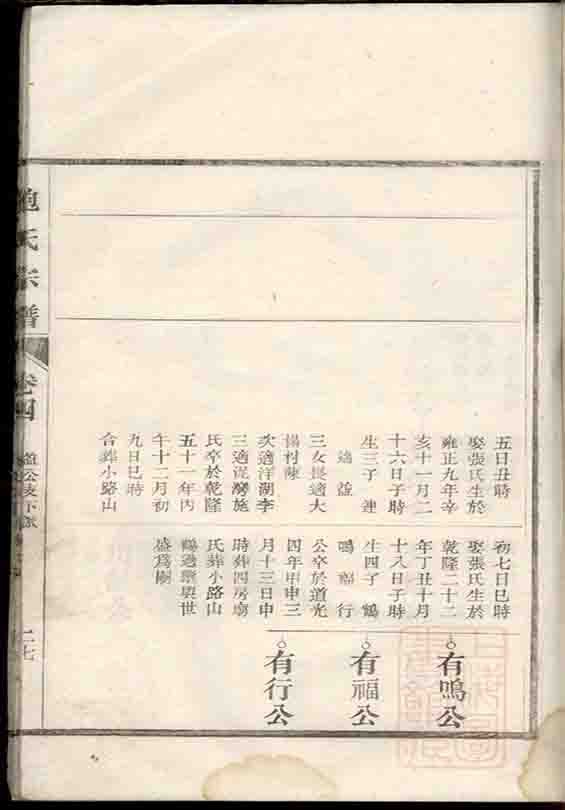 五日丑時
娶張氏生於
雍正九年辛
亥十一月二
十六日子時
生三子 連
適
三女長適大
楊村陳
次適洋湖李
三適 灣施
氏卒於乾隆
五十一年丙
午十二月初
九日巳時
合葬小路山
初七日巳時
娶張氏生於
乾隆二十二
年丁丑十月
十八日子時
生四子 鶴
鳴 福 行
公卒於道光
四年甲申三
月十三日申
時葬四房廟
氏葬小路山
鶴過繼與世
盛爲嗣
有鳴公
有福公
有行公
鮑氏宗譜
卷四
公支下
二七